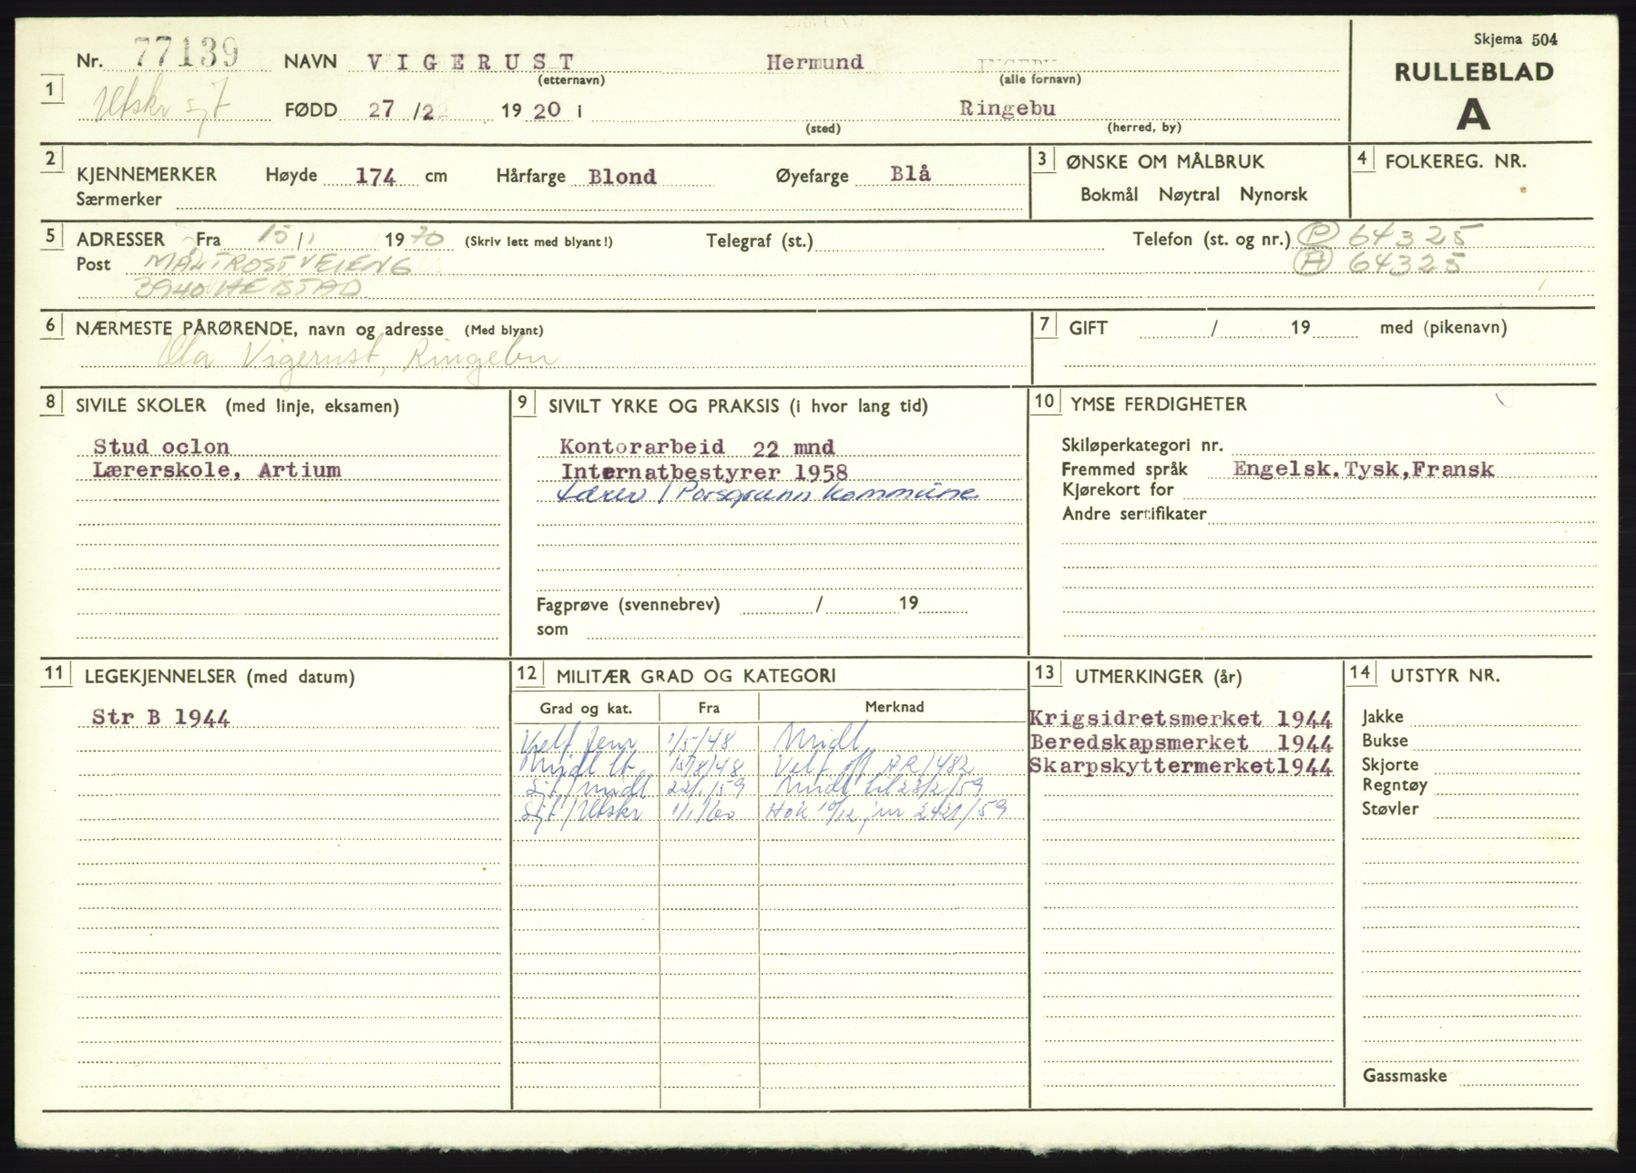 Skjema 504
RULLEBLAD
A
1
Nr. 77139 NAVN VIGERUST Hermund
(etternavn) (alle fornavn)
Utskr sjt FØDD 27 /2 1920 i Ringebu
(sted) (herred, by)
2 KJENNEMERKER Høyde 174 cm Hårfarge Blond Øyefarge Blå
Særmerker
3 ØNSKE OM MÅLBRUK
Bokmål Nøytral Nynorsk
4 FOLKEREG. NR.
5 ADRESSER Fra 15/1 1970 (Skriv lett med blyant!) Telegraf (st.) Telefon (st. og nr.) (P) 64325
Post (A) 64325
3940 HEISTAD
6 NÆRMESTE PÅRØRENDE, navn og adresse (Med blyant)
Ola Vigerust, Ringebu
7 GIFT / 19 med (pikenavn)
8 SIVILE SKOLER (med linje, eksamen)
Stud oclon
Lærerskole, Artium
9 SIVILT YRKE OG PRAKSIS (i hvor lang tid)
Kontorarbeid 22 mnd
Internatbestyrer 1958
Lærer i Porsgrunn kommune
Fagprøve (svennebrev) / 19
som
10 YMSE FERDIGHETER
Skiløperkategori nr.
Fremmed språk Engelsk.Tysk,Fransk
Kjørekort for
Andre sertifikater
11 LEGEKJENNELSER (med datum)
Str B 1944
12 MILITÆR GRAD OG KATEGORI
Grad og kat. Fra Merknad
1/5/48 Midl
15/8/48 AR/482
Sjt/midl 22/1/59 Midl til 28/2/59
Sjt/Utskr 1/1/60
13 UTMERKINGER (år)
Krigsidretsmerket 1944
Beredskapsmerket 1944
Skarpskyttermerket1944
14 UTSTYR NR.
Jakke
Bukse
Skjorte
Regntøy
Støvler
Gassmaske